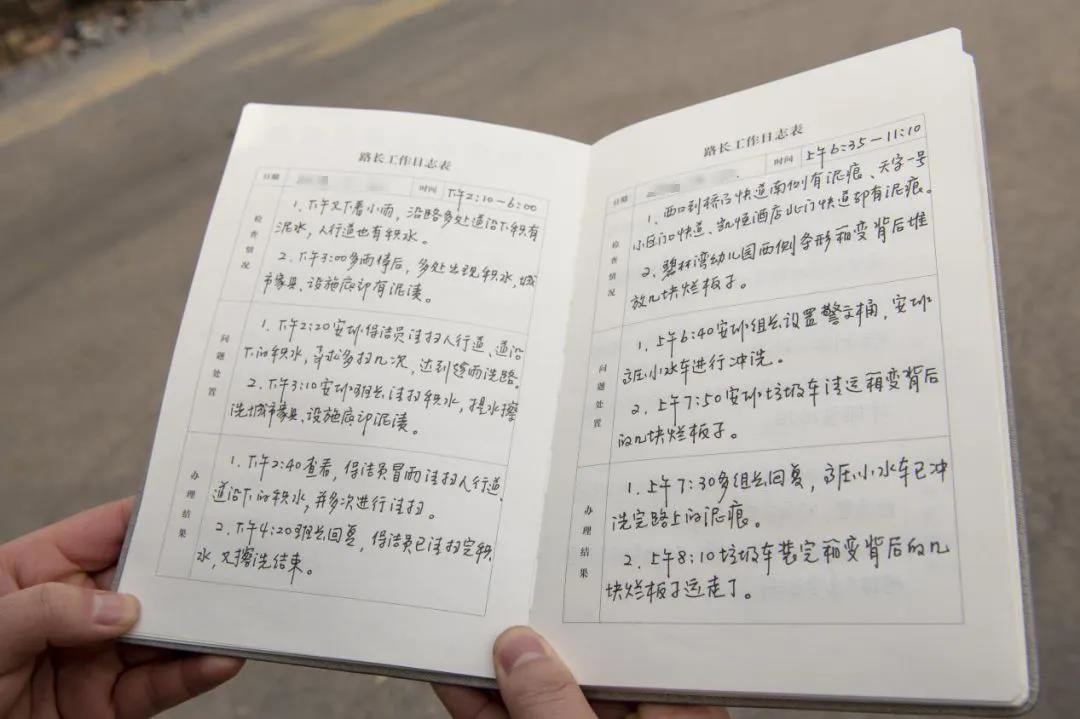 路长工作日志表
日期 时间 下午2:10-6:00
检查情况
1、下午又下着小雨，沿路多处道沿下积有
泥水，人行道也有积水。
2、下午3:00多雨停后，多处出现积水，城
市家具、设施底部有泥渍。
问题处置
1、下午2:20安排保洁员清扫人行道、道沿
下的积水，寻求多扫几次，达到趁雨洗路。
2、下午3:10安排班长清扫积水，提水擦
洗城市家具、设施底部泥渍。
办理结果
1、下午2:40查看，保洁员冒雨清扫人行道、
道沿下的积水，并多次进行清扫。
2、下午4:20班长回复，保洁员已清扫完积
水，又擦洗结束。
路长工作日志表
日期 时间 上午6:35-11:10
检查情况
1、西口到桥子快道南侧有泥痕、天字一号
小区门口快道、凯恒酒店北门快道却有泥痕。
2、碧林湾幼儿园西侧条形箱变背后堆
放几块烂板子。
问题处置
1、上午6:40安排组长设置警示桶，安排
高压小水车进行冲洗。
2、上午7:50安排垃圾车清运箱变背后
的几块烂板子。
办理结果
1、上午7:30多组长回复，高压小水车已冲
洗完路上的泥痕。
2、上午8:10垃圾车装完箱变背后的几
块烂板子运走了。